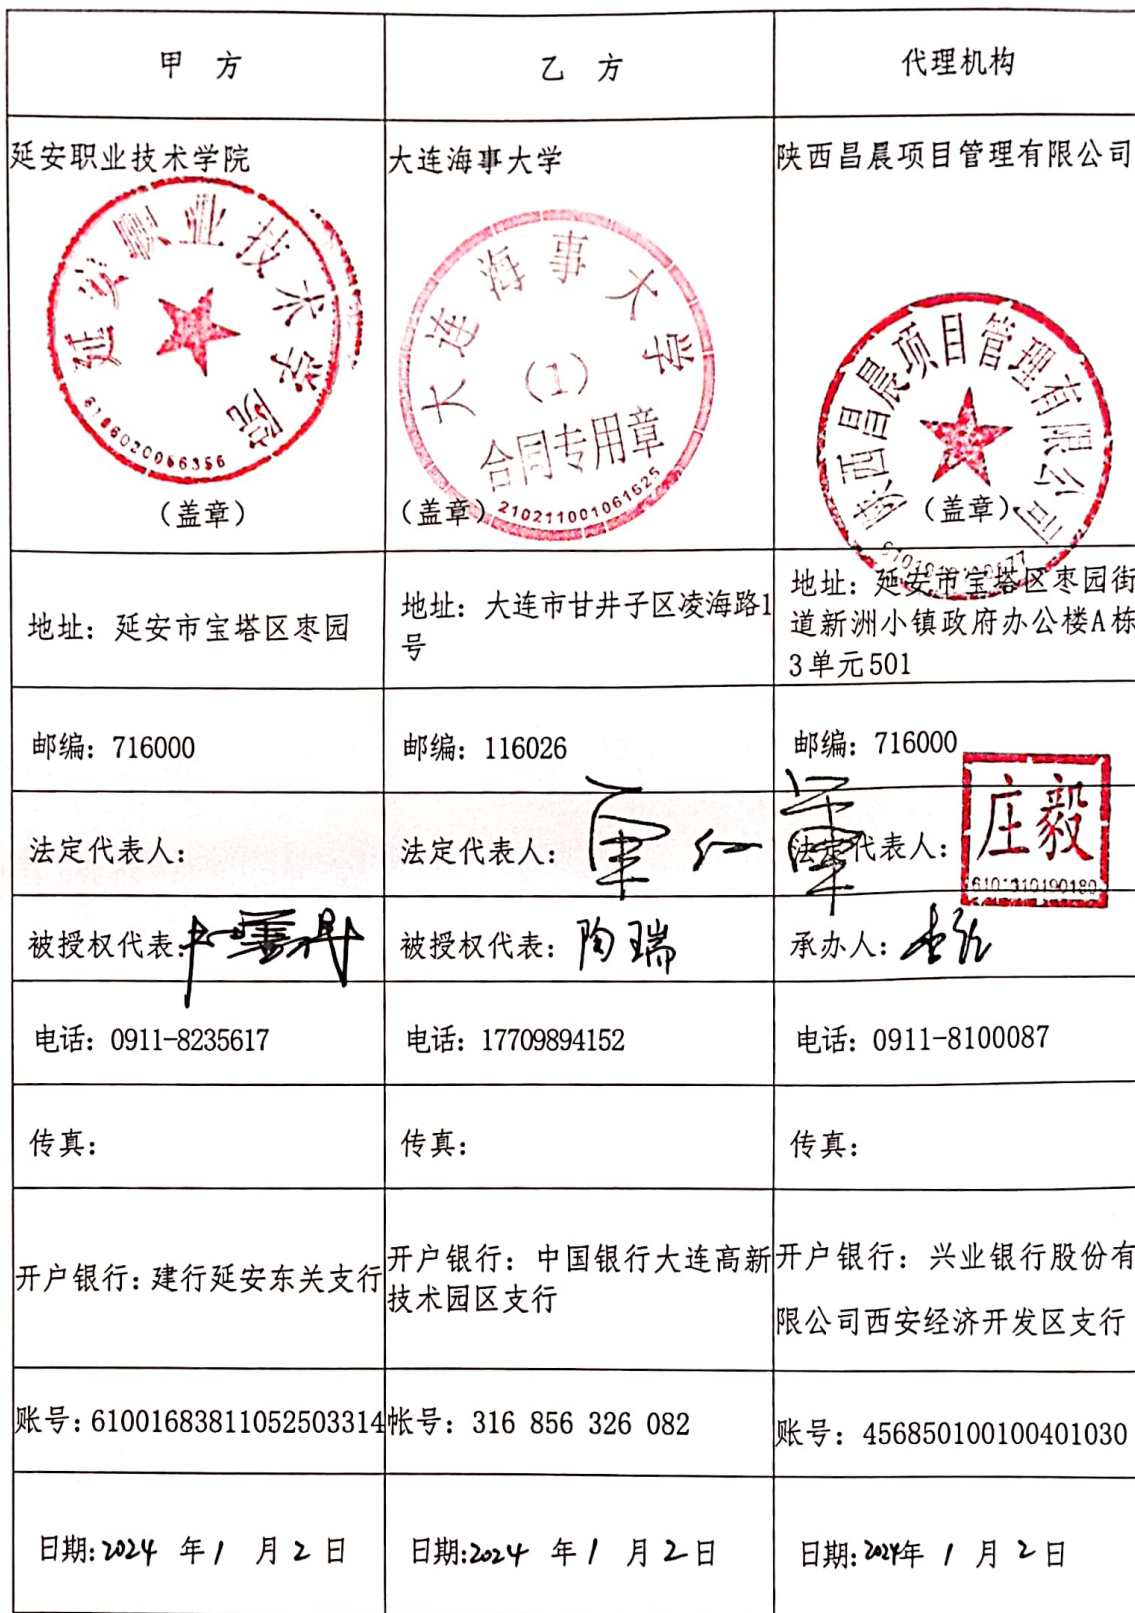 甲 方
乙 方
代理机构
延安职业技术学院
大连海事大学
陕西昌晨项目管理有限公司
延安职业技术学院
6106020056356
(盖章)
大连海事大学
(1)
合同专用章
210211001061625
(盖章)
陕西昌晨项目管理有限公司
(盖章)
地址：延安市宝塔区枣园
地址：大连市甘井子区凌海路1
号
地址：延安市宝塔区枣园街
道新洲小镇政府办公楼A栋
3单元501
邮编：716000
邮编：116026
邮编：716000
法定代表人：
法定代表人：
法定代表人：
庄毅
6101310190180
被授权代表：
被授权代表：陶瑞
承办人：
电话：0911-8235617
电话：17709894152
电话：0911-8100087
传真：
传真：
传真：
开户银行：建行延安东关支行
开户银行：中国银行大连高新
技术园区支行
开户银行：兴业银行股份有
限公司西安经济开发区支行
账号：61001683811052503314
帐号：316 856 326 082
账号：456850100100401030
日期:2024 年1 月2日
日期:2024 年1 月2日
日期:2024年 1 月 2日